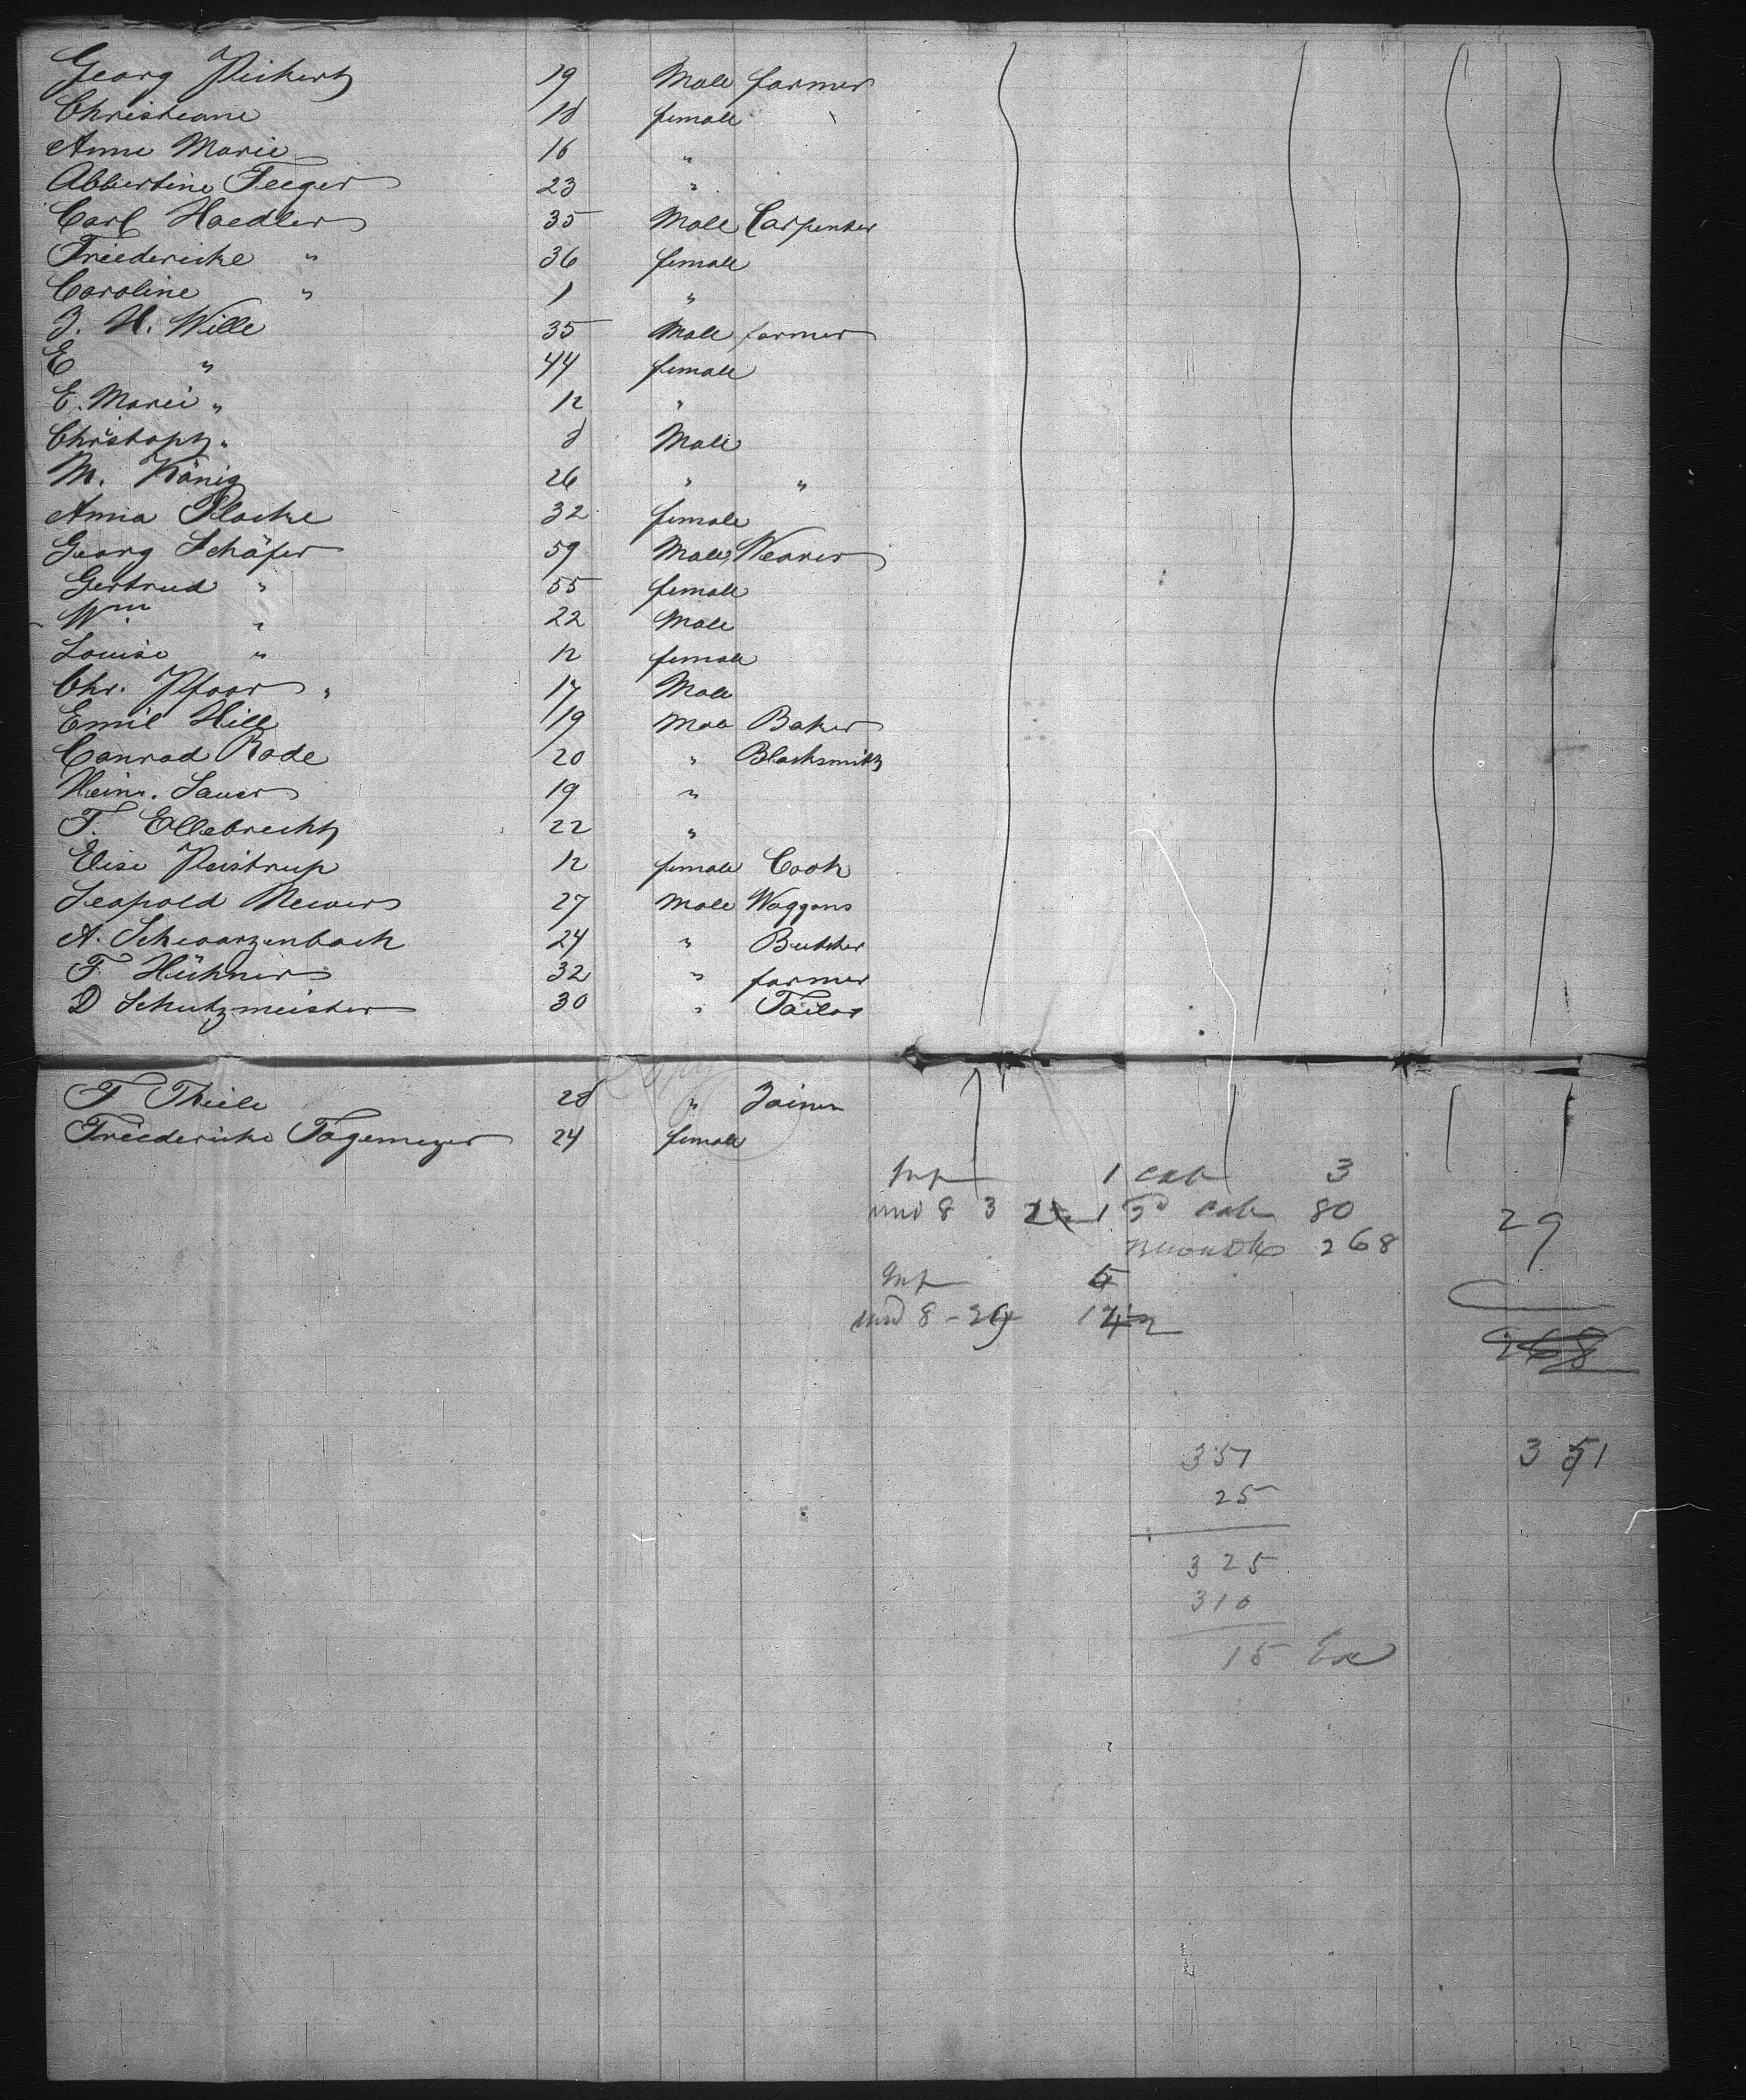 Georg Pickert 19 Male farmer
Christiane 18 female
Anne Marie 16 "
Albertine Feeger 23 "
Carl Haedler 35 Male Carpenter
Friedericke " 36 female
Caroline " 1 "
J. H. Wille 35 Male farmer
E " 44 female
E. Marie " 12 "
Christoph " 8 Male
M. König 26 " "
Anna Placke 32 female
Georg Schäfer 59 Male Weaver
Gertrud " 55 female
Wm " 22 Male
Louise " 12 female
Chr. Pfaar " 17 Male
Emil Hille 19 Male Baker
Conrad Rode 20 " Blacksmith
Heinr. Sauer 19 "
F. Ellebrecht 22 "
Elise Peistrup 12 female Cook
Leopold Mewers 27 Male Waggons
A. Schwarzenbach 24 " Butcher
F Hühner 32 " farmer
D Schutzmeister 30 " Tailor
F Thiele 28 " Joiner
Friedericke Tagemeyer 24 female
Inf 1 cab 3
und 8 3 1 2d cab 80 29
268
Inf 5
und 8 - 29
268
351 351
25
325
310
15 Ex